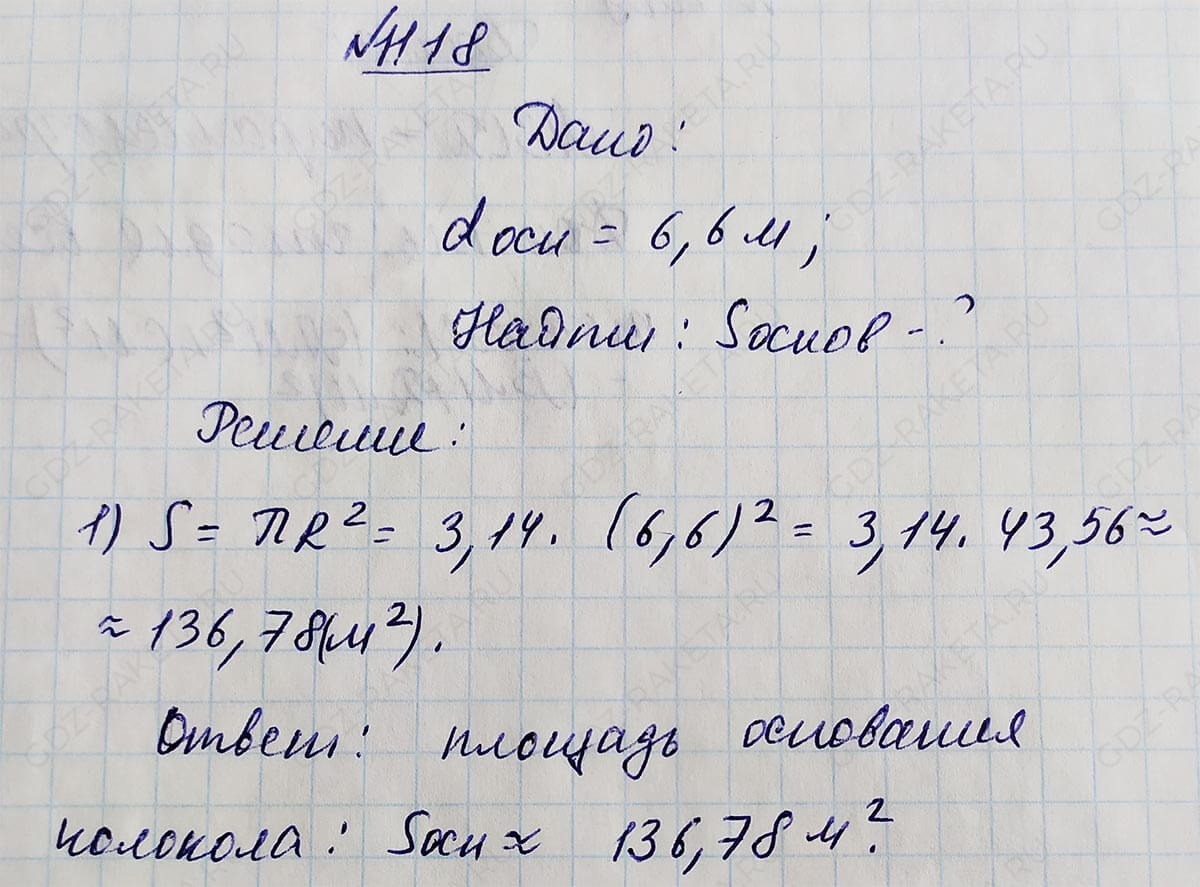 №1118
Дано:
dосн = 6,6 м;
Найти: Sоснов - ?
Решение:
1) S = πR² = 3,14 · (6,6)² = 3,14 · 43,56 ≈
≈ 136,78(м²).
Ответ: площадь основания
колокола: Sосн ≈ 136,78 м².
GDZ-RAKETA.RU